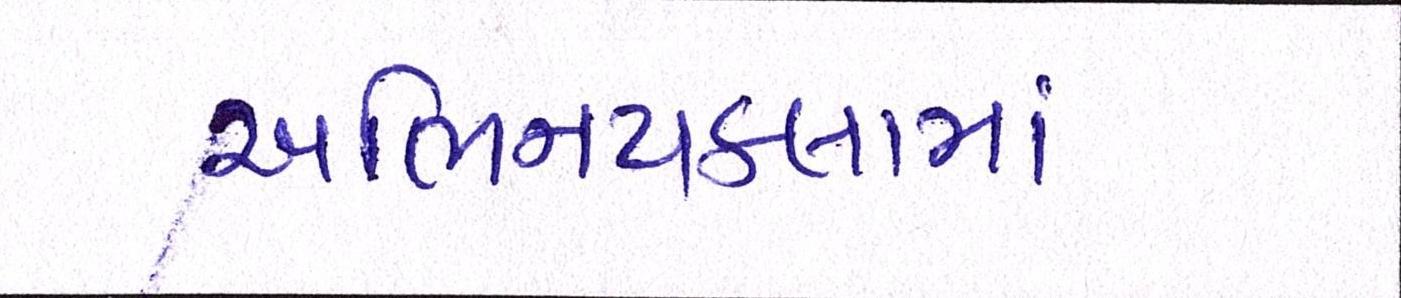 અભિનયકલામાં